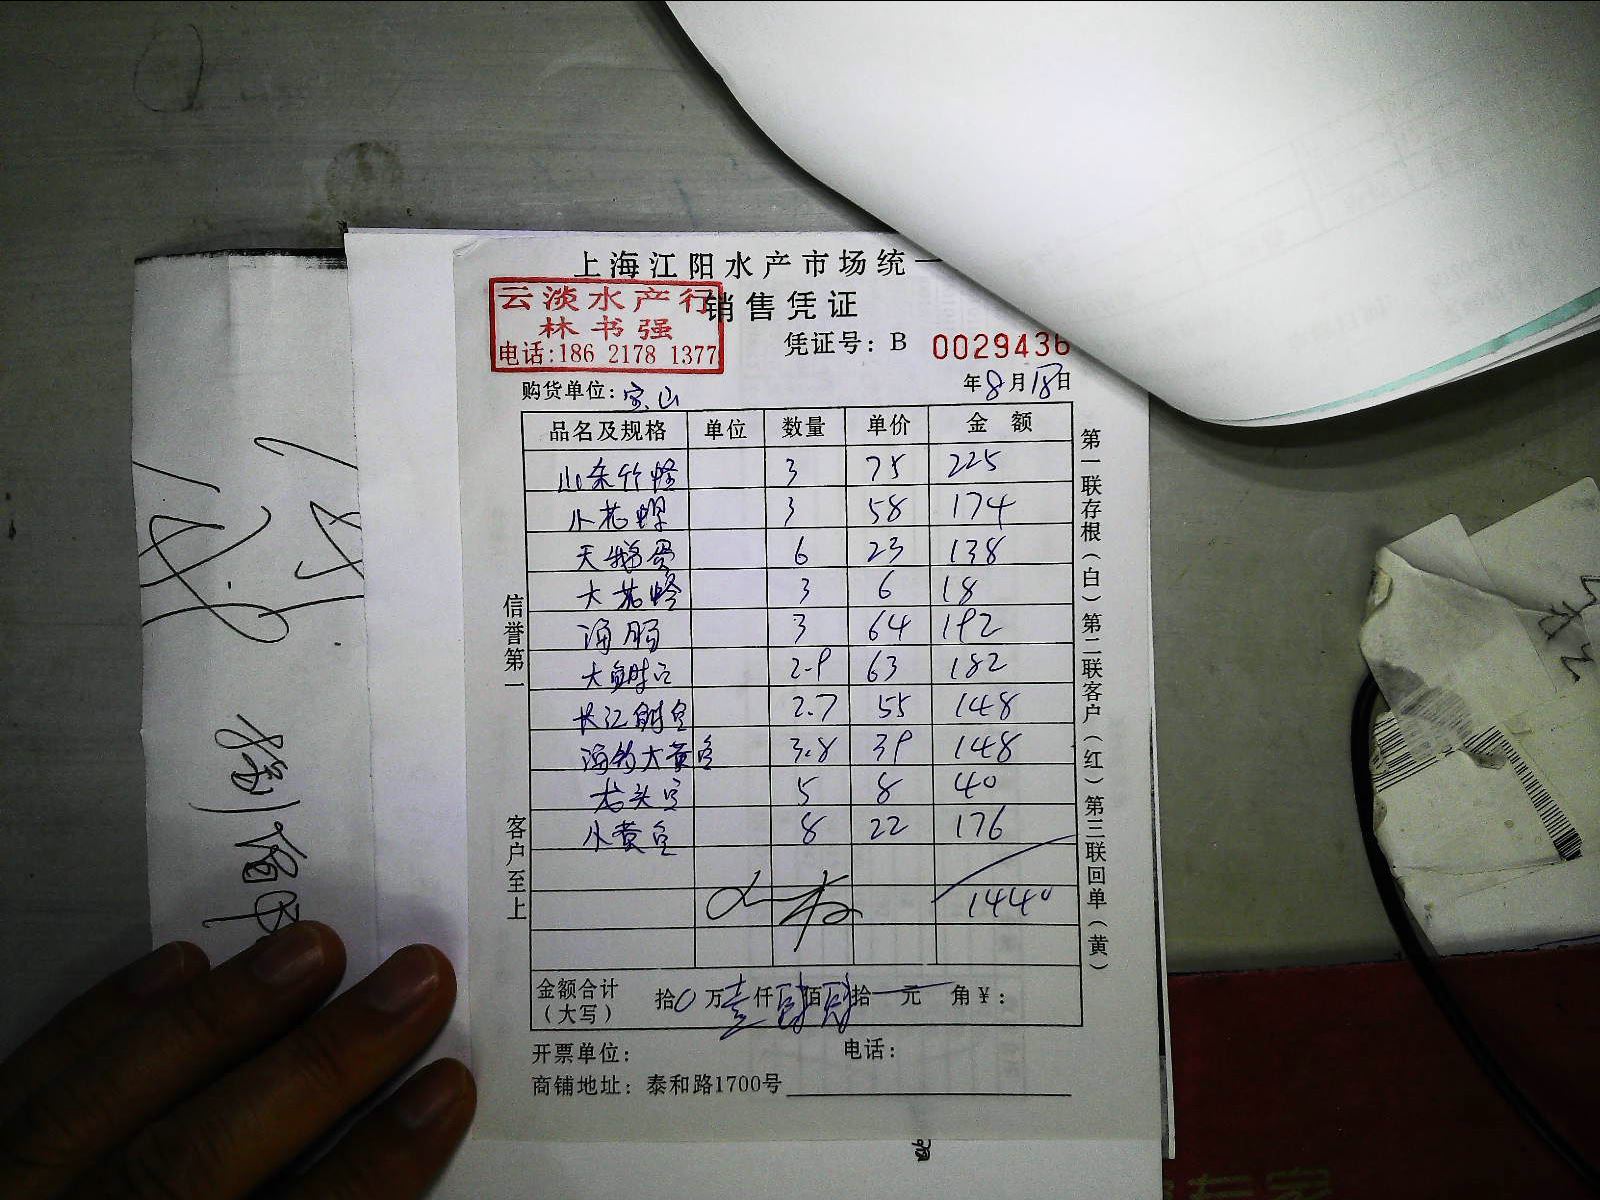 上海江阳水产市场统一
销售凭证
云淡水产行
林书强
电话:186 2178 1377
凭证号: B 0029436
购货单位: 宝山
年8月18日
品名及规格 单位 数量 单价 金额
山东竹蛏 3 75 225
小花螺 3 58 174
天鹅蛋 6 23 138
大花蛤 3 6 18
海肠 3 64 192
大鱼 2.9 63 182
长江 2.7 55 148
海钓大黄鱼 3.8 39 148
龙头鱼 5 8 40
小黄鱼 8 22 176
1440
金额合计(大写) 拾0万壹仟肆佰肆拾一元 角¥:
开票单位: 电话:
商铺地址: 泰和路1700号
信誉第一
客户至上
第一联存根(白)第二联客户(红)第三联回单(黄)